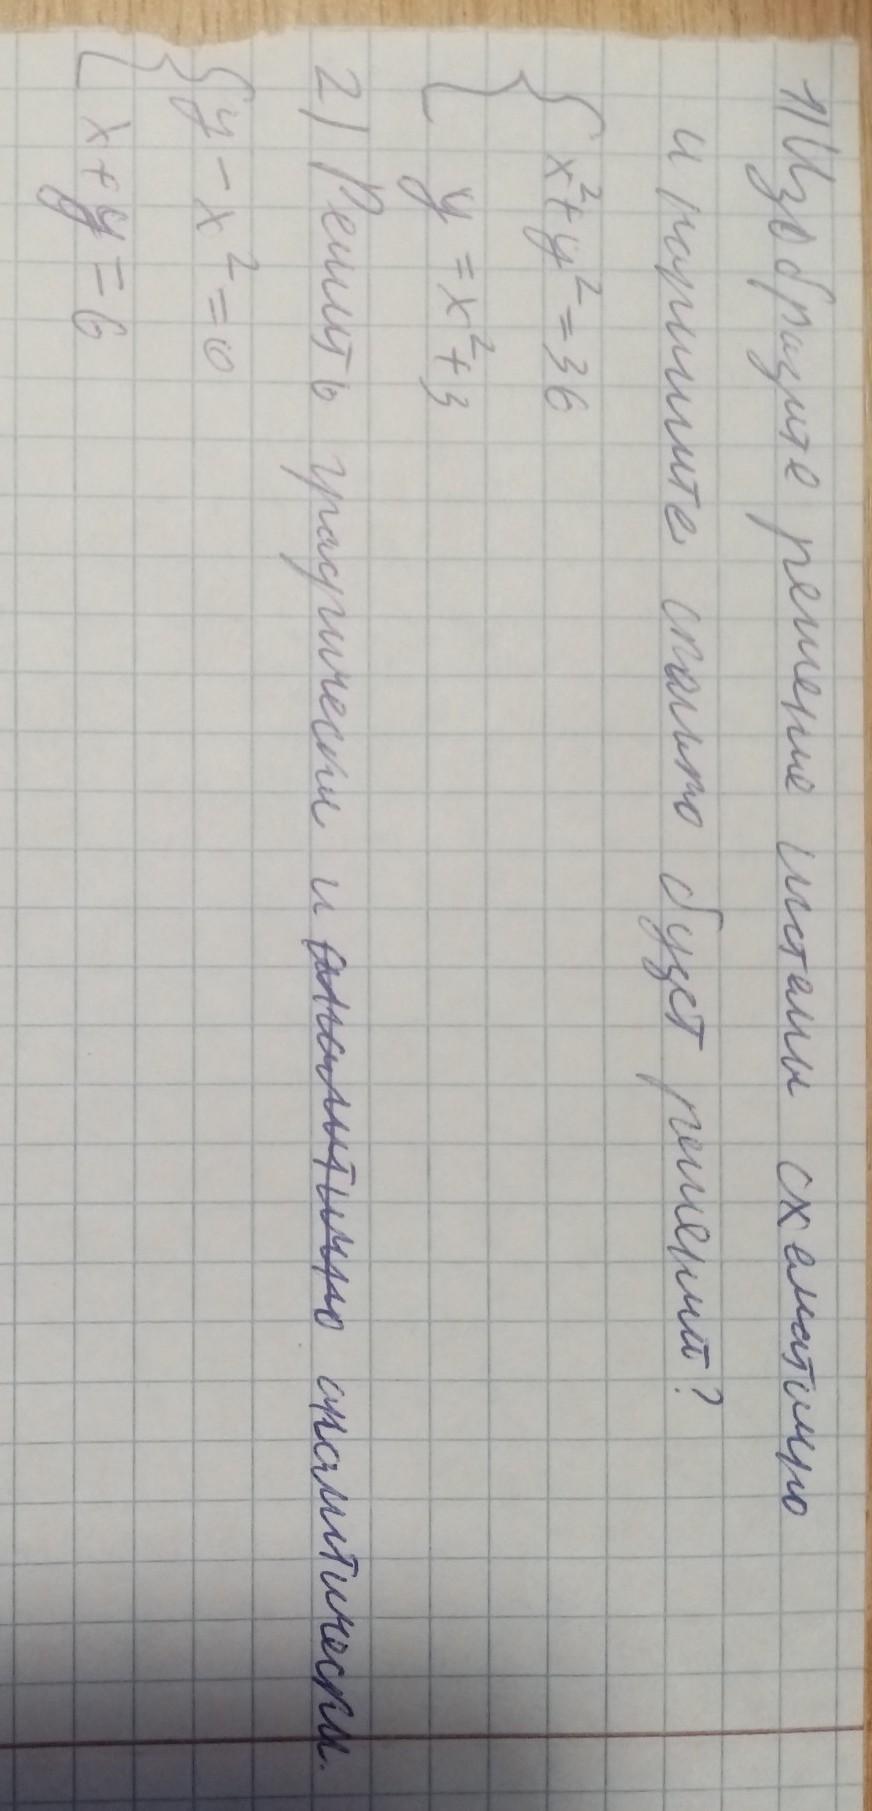 1) Изобразите решение системы схематично
и напишите сколько будет решений?
{ x² + y² = 36
{ y = x² + 3
2) Решить графически и аналитически.
{ y - x² = 0
{ x + y = 6